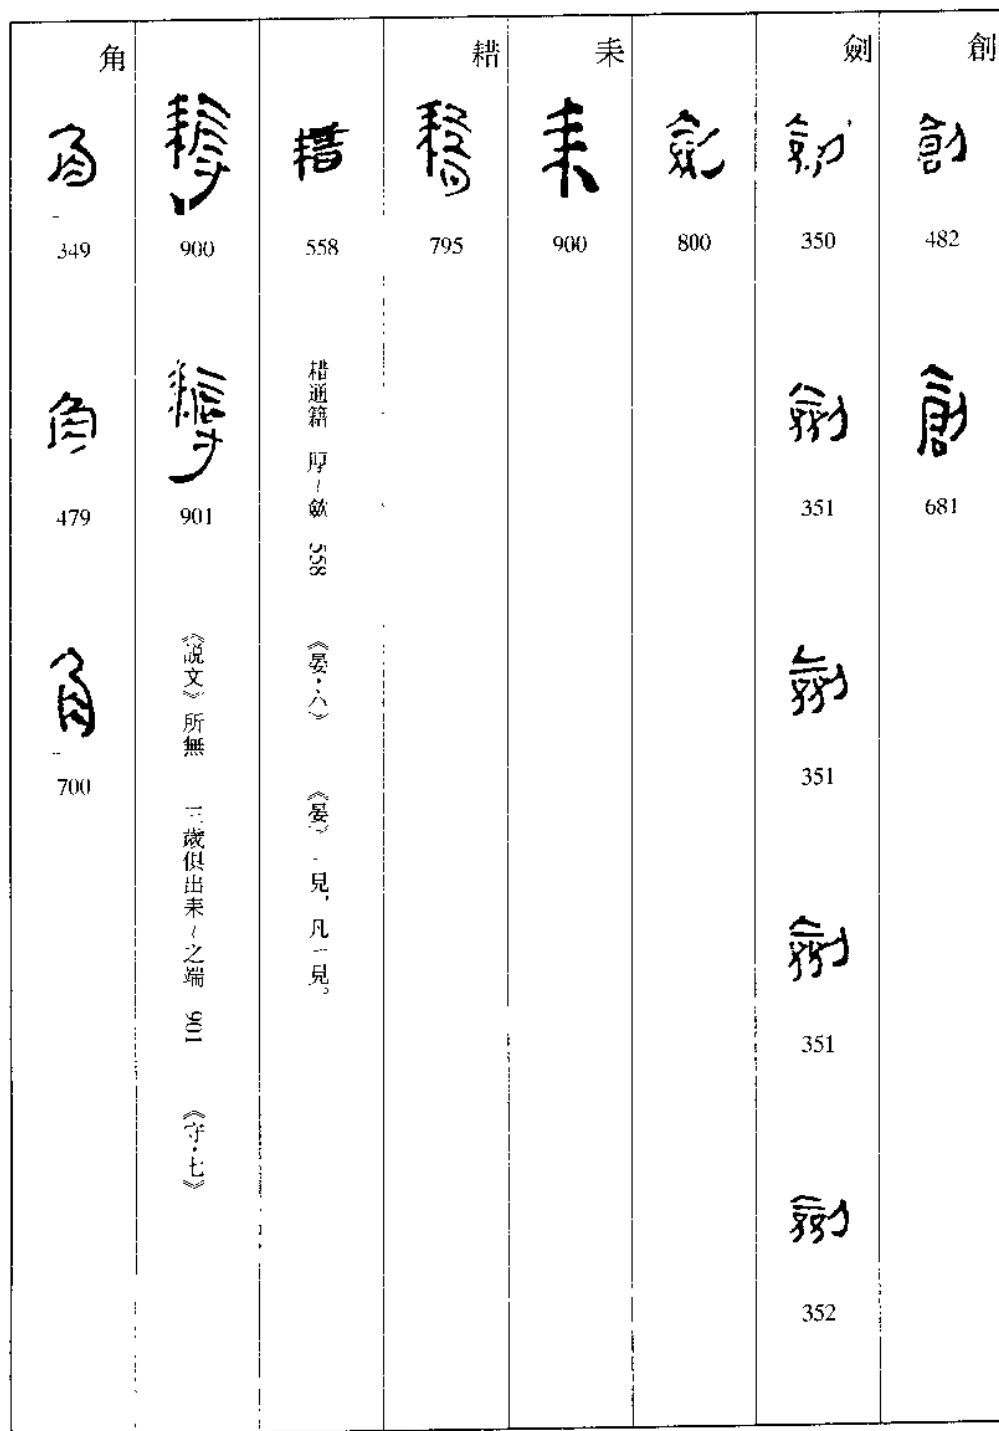 創
創 482
創 681
劒
劒 350
劒 351
劒 351
劒 351
劒 352
劒 800
耒
耒 900
耤
耤 795
耤 558
耤通籍 厚~斂 558 《晏·八》 《晏》一見，凡一見。
900
901
《説文》所無 三歲俱出耒~之端 901 《守·七》
角
角 349
角 479
角 700